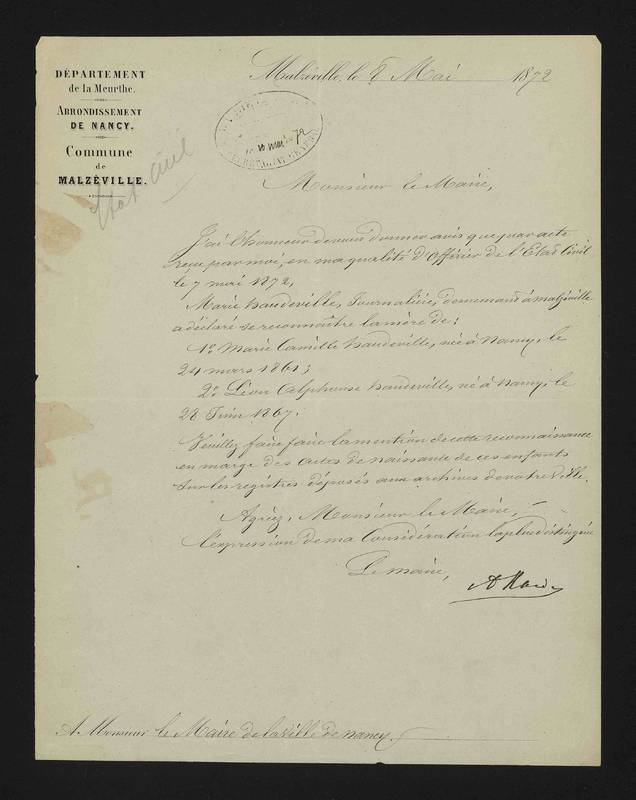 DÉPARTEMENT
de la Meurthe.
ARRONDISSEMENT
DE NANCY.
Commune
de
MALZÉVILLE.
Etat Civil
Malzéville, le 8 Mai 1872
Monsieur le Maire,
J'ai l'honneur de vous donner avis que par acte
reçu par moi, en ma qualité d'officier de l'Etat Civil
le 7 mai 1872,
Marie haudeville, Journalière, demeurant à malzéville
a déclaré se reconnaître la mère de:
1º Marie Camille haudeville, née à Nancy, le
24 mars 1861;
2º Léon Alphonse haudeville, né à Nancy, le
28 Juin 1867.
Veuillez faire faire la mention de cette reconnaissance
en marge des actes de naissance de ces enfants
sur les registres déposés aux archives de votre ville.
Agréez, Monsieur le Maire,
l'expression de ma Considération la plus distinguée
Le maire,
A Monsieur le Maire de la ville de nancy.